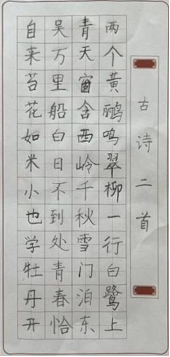 古诗二首
两个黄鹂鸣翠柳一行白鹭上
青天窗含西岭千秋雪门泊东
吴万里船白日不到处青春恰
自来苔花如米小也学牡丹开